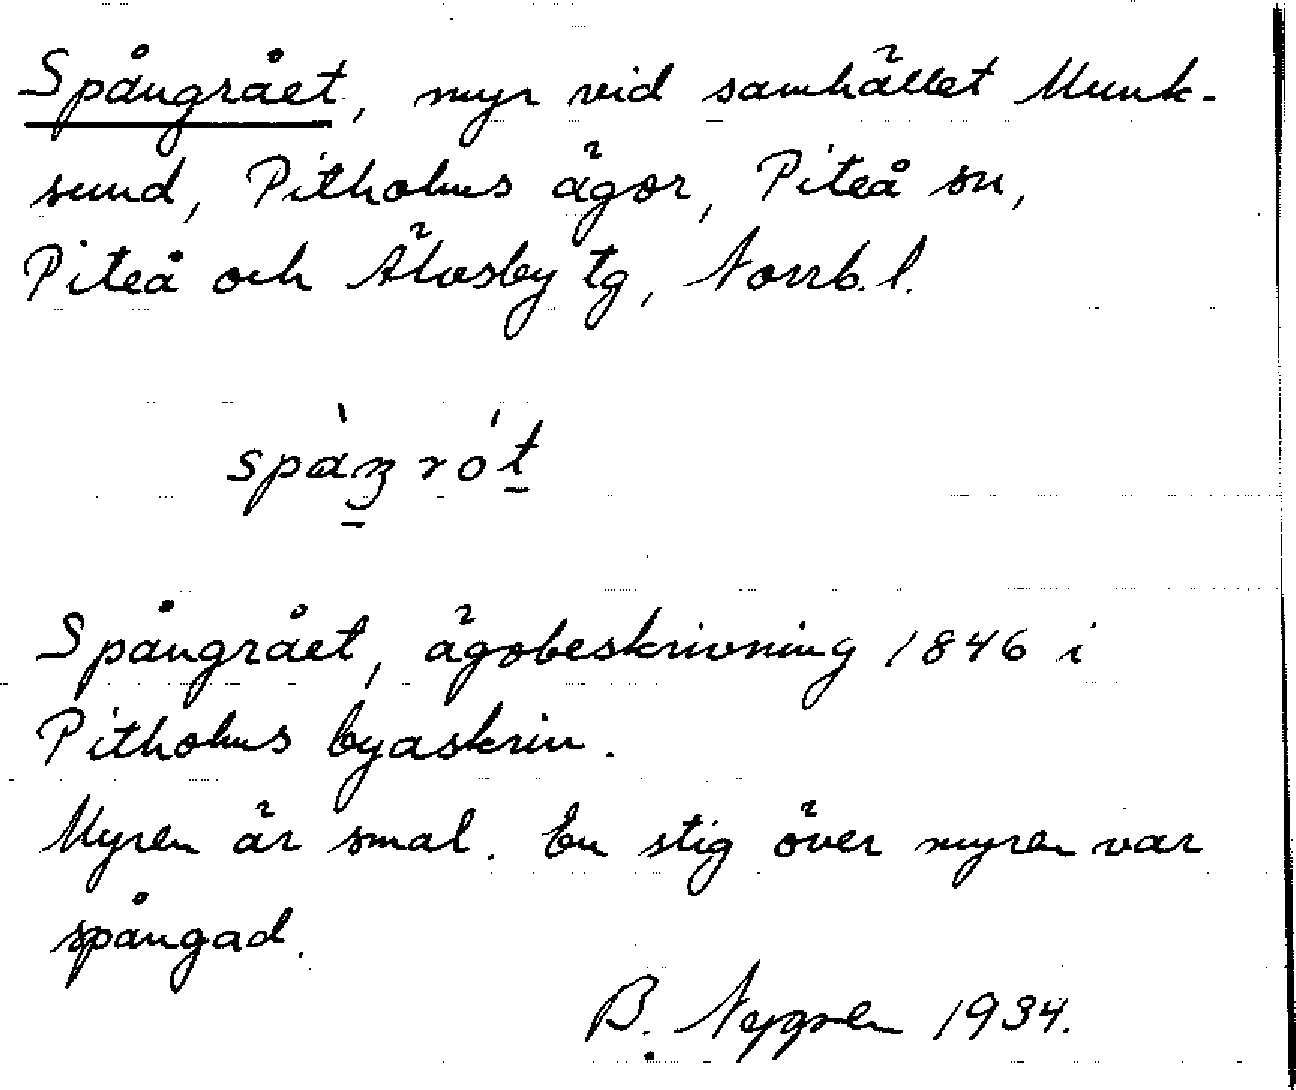 Spångrået, myr vid samhället Munk-
sund, Pitholms ägor, Piteå sn,
Piteå och Älvsby tg, Norrb. l.
Spångrået, ägobeskrivning 1846 i
Pitholms byaskrin.
Myren är smal. En stig över myren var
spångad.
B. Nygren 1934.